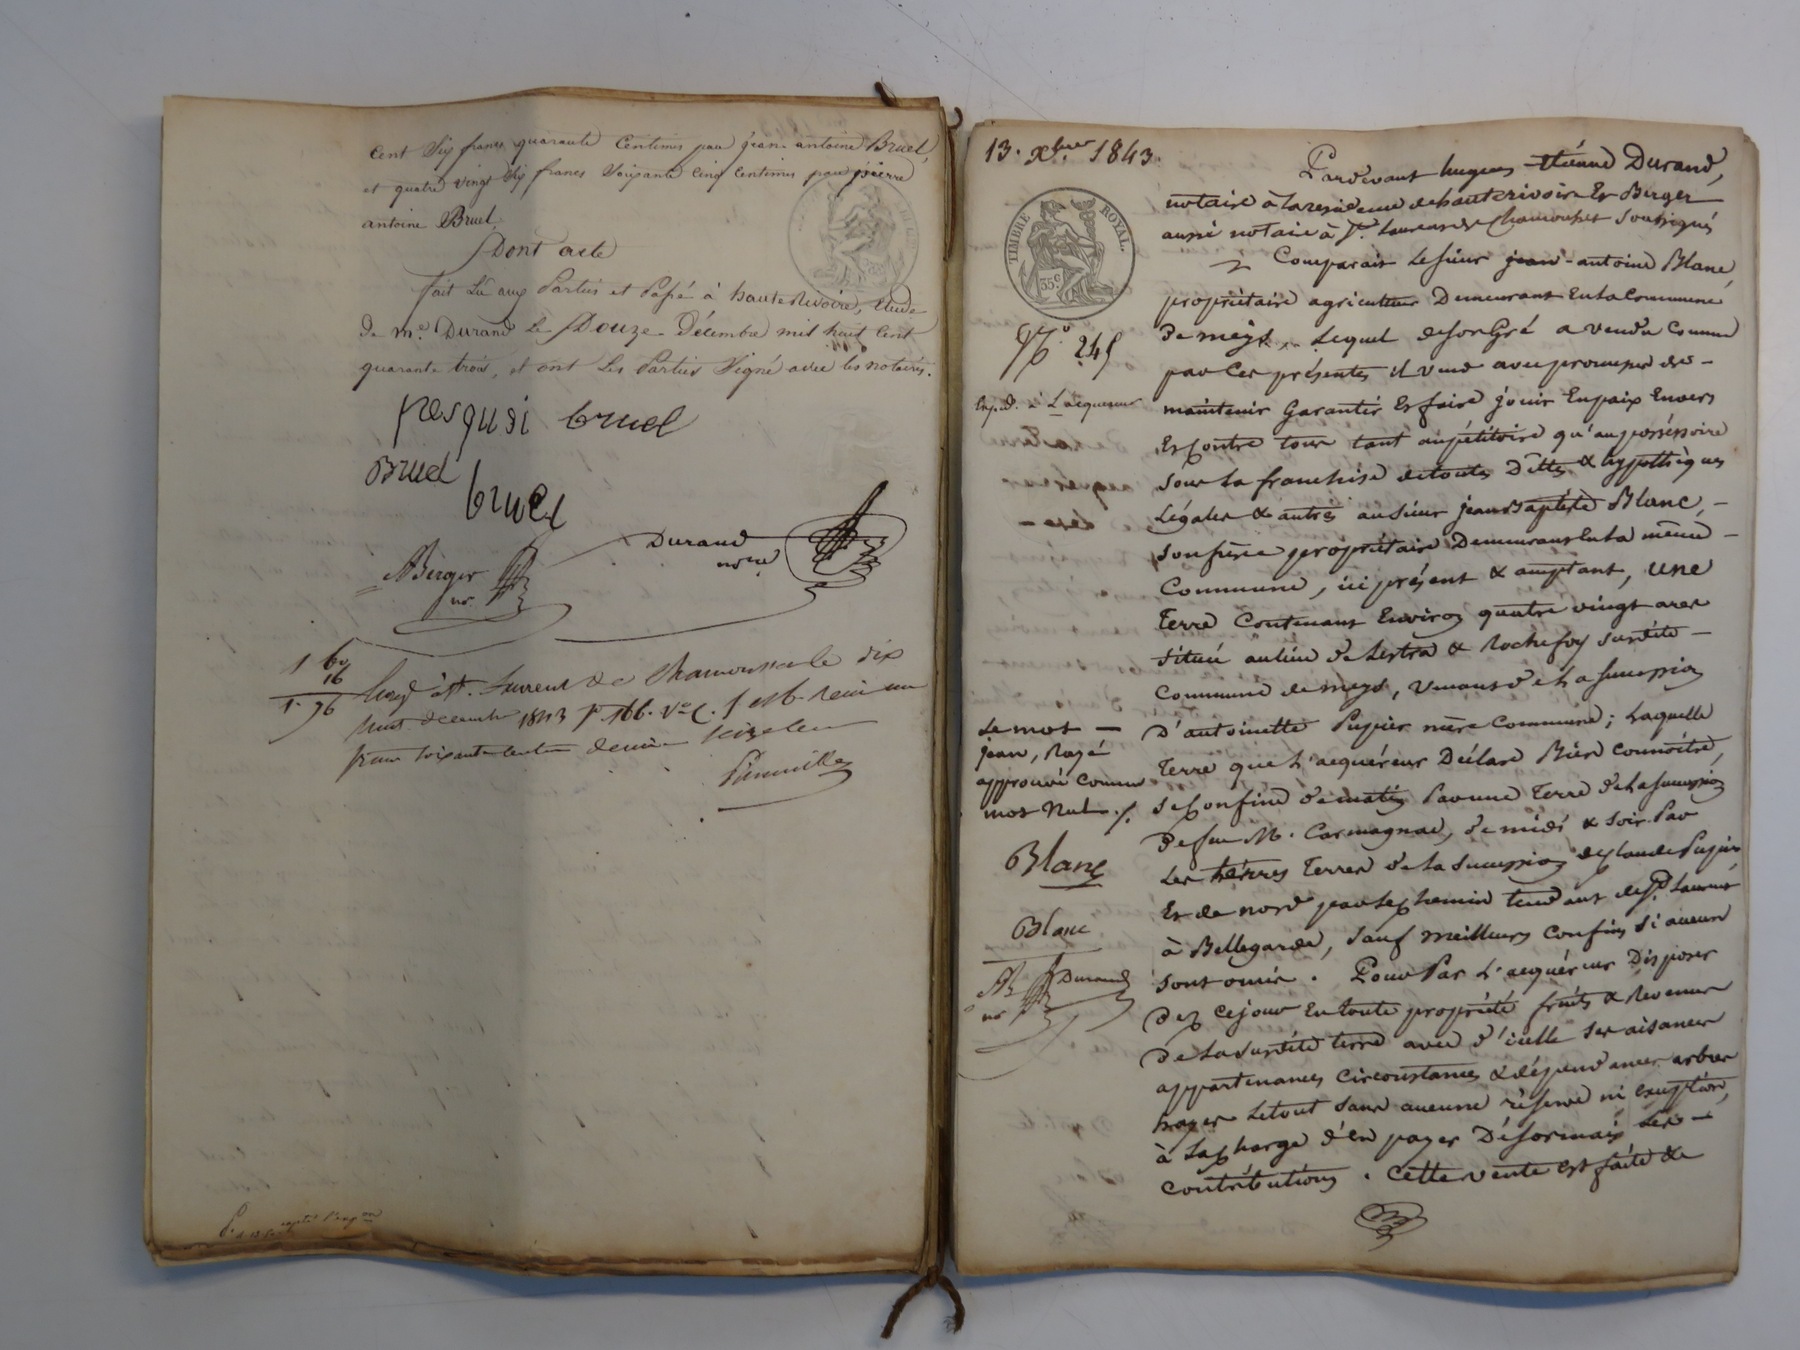 Cent Six francs quarante Centimes pour jean antoine Bruel,
et quatre vingt Six francs Soixante Cinq Centimes pour pierre
antoine Bruel.
Dont acte
fait Lu aux Parties et Passé à hauteRivoire, Etude
de me. Durand Le Douze Décembre mil huit Cent
quarante trois, et ont Les Parties Signé avec les notaires.
bruel
Bruel
bruel
Durand
nore
ABerger
nre
1 60
16
1. 76
Enregé à St. Laurent de Chamousset le dix
huit décembre 1843 fo. 166. Vo C. 1
franc soixante centimes décime seize cen
13. Xbre 1843.
TIMBRE ROYAL.
35c
No. 245
Expéd. à L'acquéreur
Pardevant hugues Etienne Durand,
notaire à la résidence de hauterivoire Et Berger
aussi notaire à St. Laurent de Chamousset Soussignés
Comparait le sieur jean-antoine Blanc
propriétaire agriculteur Demeurant En la Commune
de meys, Lequel de Son Gré a vendu Comme
par Ces présentes il Vend avec promesse de -
maintenir Garantir Et faire jouir En paix Envers
Et Contre tous tant au pétitoire qu'au possessoire
Sous La franchise de toutes Dettes & hypothèques
Légales & autres au Sieur jean Baptiste Blanc, -
Son frère propriétaire Demeurant En la même -
Commune, ici présent & acceptant, une
Terre Contenant Environ quatre vingt ares
située au lieu de Lestra & Rochefoy Susdite -
Commune de meys, Venant de La Succession
D'antoinette Pupier mère Commune; Laquelle
Terre que L'acquéreur Déclare Bien Connoître,
Se Confine de matin Par une Terre de La Succession
De feu M. Carmagnac, de midi & Soir Par
Les terres de La Succession de Claude Pupier,
Et de nord par Le Chemin tendant de St. Laurent
à Bellegarde, Sauf meilleurs Confins Si aucuns
Sont omis. Pour Par L'acquéreur Disposer
Dez Ce jour En toute propriété fruits & Revenus
De La Susdite terre avec d'icelle Ses aisances
appartenances Circonstances & dépendances arbres
hayes Le tout Sans aucune réserve ni Exception,
à La Charge d'en payer Désormais Les -
Contributions. Cette vente est faite &
Le mot -
jean, Rayé
approuvé Comme
mot Nul ./.
Blanc
Blanc
Durand